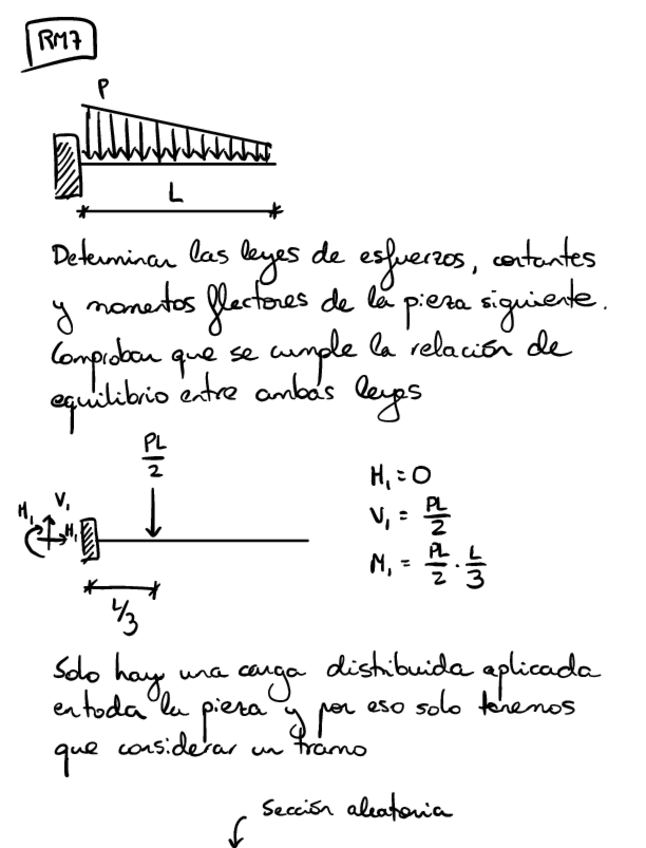 RM7
P
L
Determinar las leyes de esfuerzos, cortantes
y momentos flectores de la pieza siguiente.
Comprobar que se cumple la relación de
equilibrio entre ambas leyes
PL
2
H₁ = 0
V₁ = PL/2
M₁ = PL/2 · L/3
H₁
V₁
M₁
L/3
Solo hay una carga distribuida aplicada
en toda la pieza y por eso solo tenemos
que considerar un tramo
Sección aleatoria